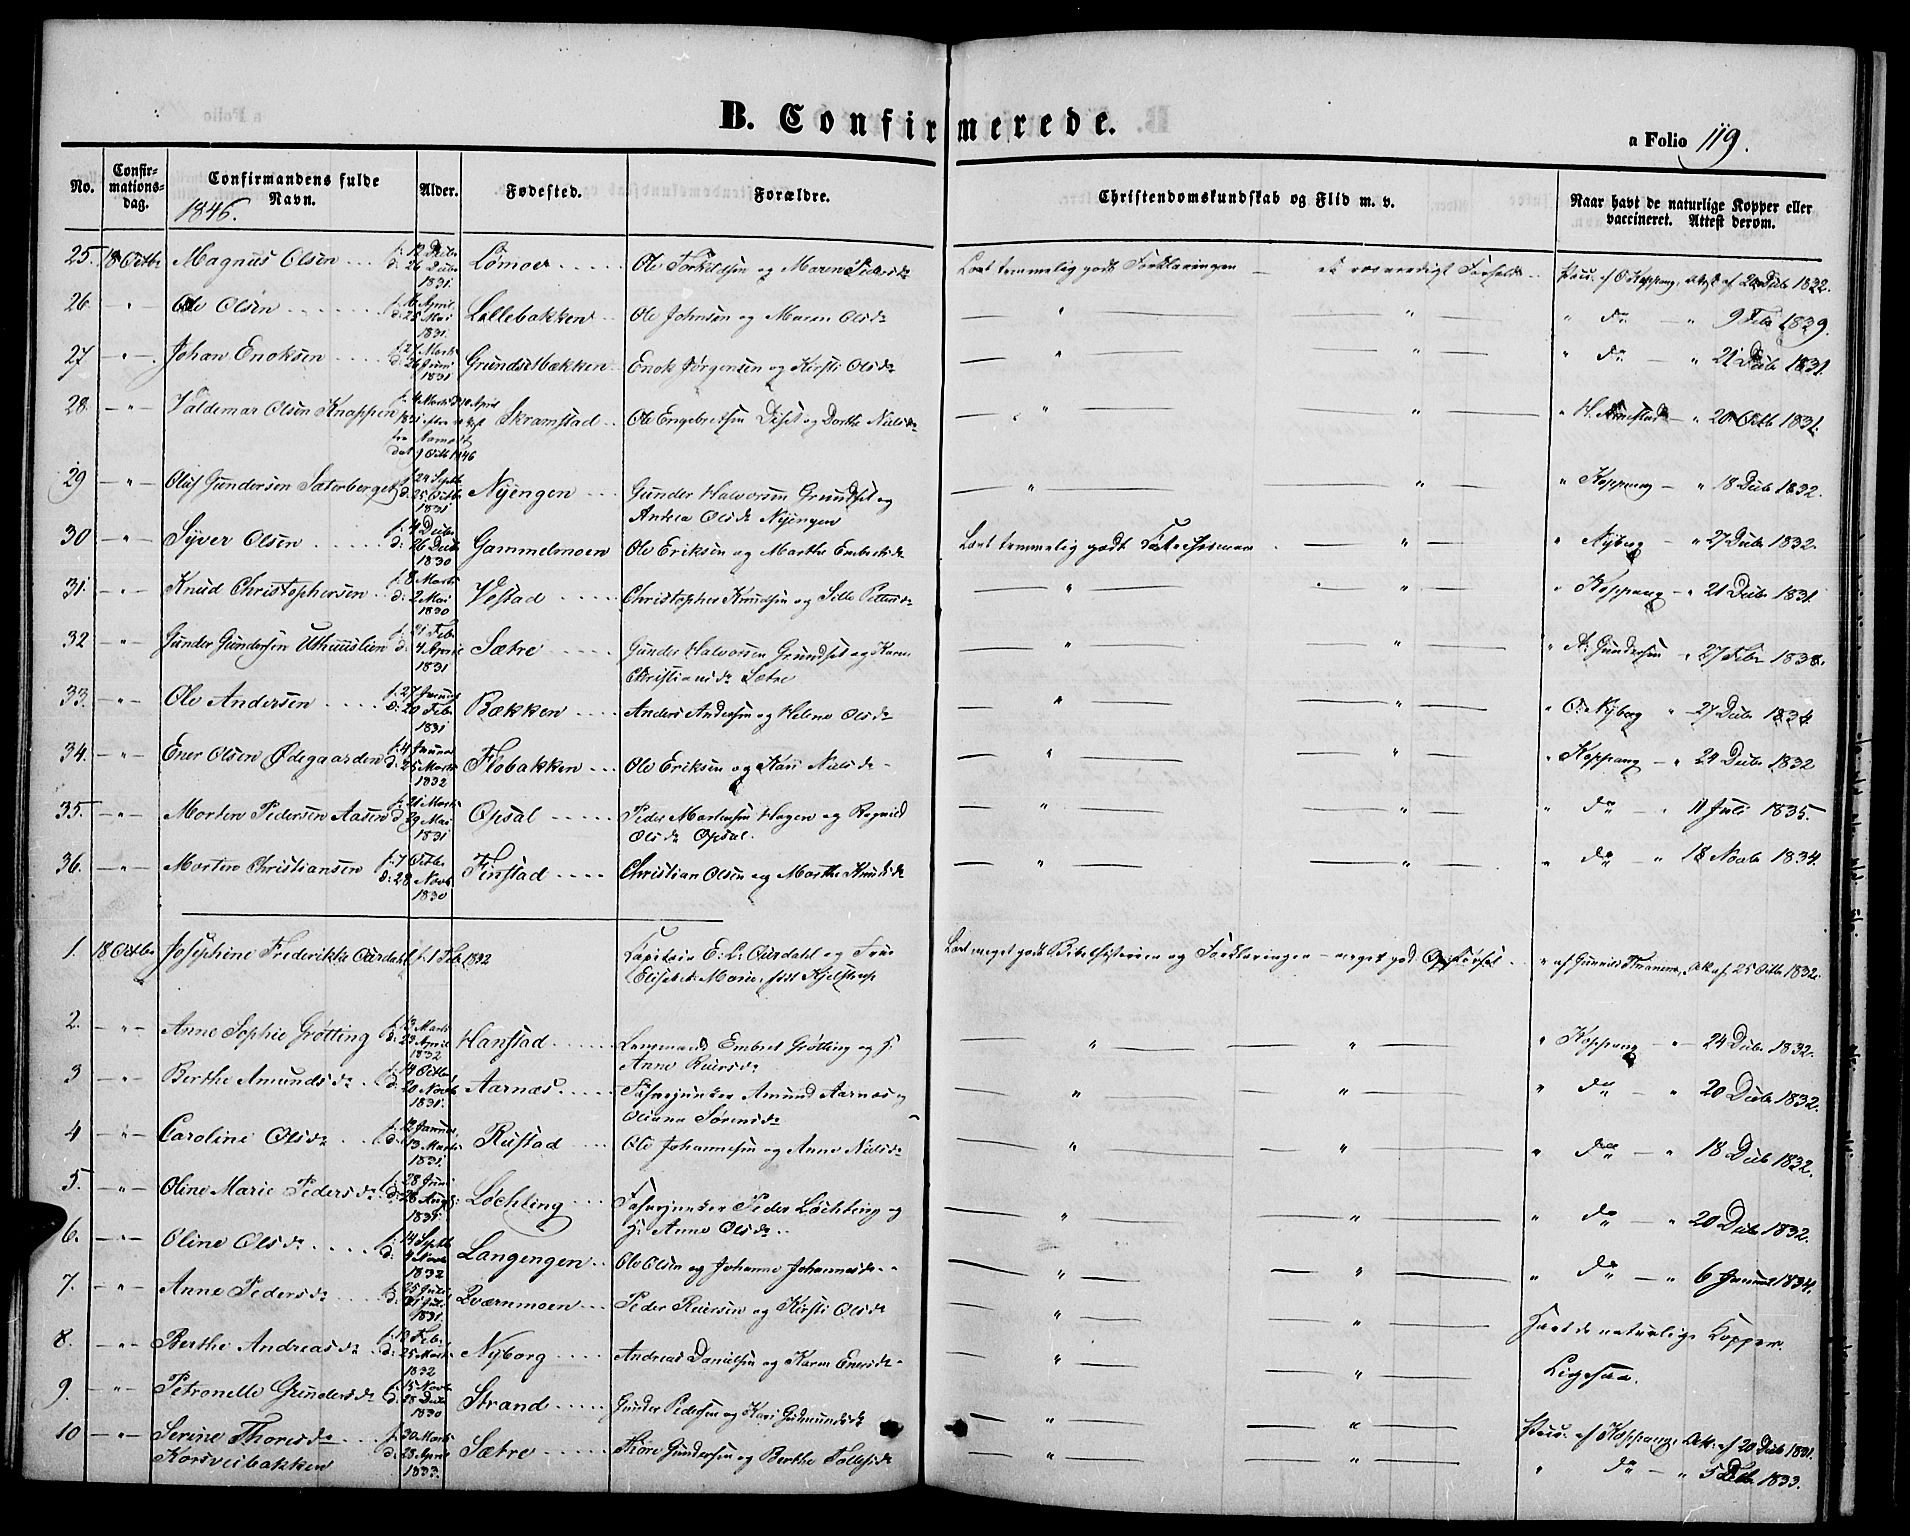 B. Confirmerede.
a Folio 119.
No.
Confirmations-dag.
Confirmandens fulde Navn.
Alder.
Fødested.
Forældre.
Christendomskundskab og Flid m. v.
Naar havt de naturlige Kopper eller vaccineret. Attest derom.
1846.
25. 18 Octbr Magnus Olsen f. 12 Decbr d. 26 Decbr 1831. Lømoer Ole Torkildsen og Maren Pedersdr Lært temmelig godt Forklaringen — Vacc. af O. Koppang, attest af 20 Decbr 1832.
26 " Ole Olsen f. 6 April d. 25 Mai 1831. Lillebakken Ole Johnsen og Maren Olsdr — " — " do — " 9 Febr 1839.
27 " Johan Enoksen f. 27 Marts d. 26 Juni 1831 Grundsetbækken Enok Jørgensen og Kirsti Olsdr — " — " do — " 21 Decbr 1831.
28. " Valdemar Olsen Knappen f. 4 Marts d. 10 April 1831 Skramstad Ole Engebretsen Diset og Dorthe Nielsdr — " — " — " 20 Octb 1831.
fra Aamodt
dat 1 Octb 1846
29 " Oluf Gundersen Sæterberget f. 24 Septbr d. 25 Octbr 1831 Nyengen Gunder Halvorsen Grundset og — " — " Koppang — " 18 Decbr 1832.
Andrea Olsdr Nyengen
30 " Syver Olsen f. 4 Decbr d. 26 Decbr 1830 Gammelmoen Ole Eriksen og Marthe Embretsdr Lært temmelig godt — " — " Nyborg — " 27 Decbr 1832.
31. " Knud Christophersen f. 8 Marts d. 2 Mai 1830 Vestad Christopher Knudsen og Sille Pettersdr — " — " Koppang — " 21 Decbr 1831.
32 " Gunder Gundersen Uthuuslien f. 21 Febr d. 4 April 1831 Sætre Gunder Halvorsen Grundset og Karen — " — " A. Gundersen " 27 Febr 1838.
Christiansdr Sætre
33. " Ole Andersen f. 27 Januar d. 20 Febr 1831 Bækken Anders Andersen og Helene Olsdr — " — " O. Nyborg " 27 Decbr 1834.
34. " Ener Olsen Ødegaarden f. 4 Januar d. 25 Marts 1832 Flobakken Ole Eriksen og Kari Nielsdr — " — " Koppang — " 24 Decbr 1832
35. " Morten Pedersen Aasen f. 21 Marts d. 29 Mai 1831. Opsal Peder Mortensen Hagen og Ragnild — " — " do — " 11 Juli 1835.
Olsdr Opsal.
36. " Morten Christiansen f. 7 Octbr d. 28 Novbr 1830 Finstad Christian Olsen og Marthe Knudsdr — " — " do " 18 Novbr 1834.
1. 18 Octbr Josephine Frederikke Ourdahl f. 1 Feb 1832 Capitain E. L. Ourdahl og Frue Lært meget godt Bibelhistorien og Forklaringen — meget god Opførsel " af Gunnild Tranene, Att. af 25 Octb 1832.
Elisabeth Marie, født Kjelstrup
2. " Anne Sophie Grøtting f. 13 Marts d. 29 April 1832 Hanstad Lensmand Embret Grøtting og H. — " — " Koppang — " 24 Decbr 1832.
Anne Reiersdr
3 " Berthe Amundsdr f. 14 Octbr d. 20 Novb 1831. Aarnæs Amund Aarnæs og — " — " do " 20 Decbr 1832.
Oliana Sørensdr
4 " Caroline Olsdr f. 12 Januar d. 13 Marts 1831. Rustad Ole Johannesen og Anne Nielsdr — " — " do — " 18 Decb 1832.
5. " Oline Marie Pedersdr f. 28 Juni d. 28 Aug. 1831. Løchting Peder Løchting og — " — " do — " 20 Decbr 1832.
H. Anne Olsdr
6. " Oline Olsdr f. 14 Septb d. 4 Novbr 1832 Langengen Ole Olsen og Johanne Johannesdr — " — " do — " 6 Januar 1834.
7. " Anne Pedersdr f. 25 Juli d. 31 Juli 1831. Qværnmoen Peder Reiersen og Kirsti Olsdr — " — Havt de naturlige Kopper.
8. " Berthe Andreasdr f. 12 Feb. d. 25 Marts 1832 Nyborg Andreas Danielsen og Karen Enersdr — " — Ligesaa.
9. " Petronelle Gundersdr f. 15 Novb d. 28 Decbr 1830 Strand Gunder Pedersen og Kari Gudmundsdr — " — Vacc. af Koppang, Att. af 20 Decb 1831.
10 " Serine Thoresdr f. 30 Marts d. 28 April 1833. Sætre Thore Gundersen og Berthe Tollefsdr — " — " do — " 5 Febr 1833.
Korsveibakken